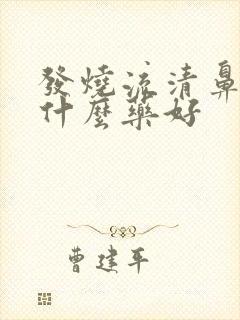 發燒流清鼻
什麼藥好
曹建平